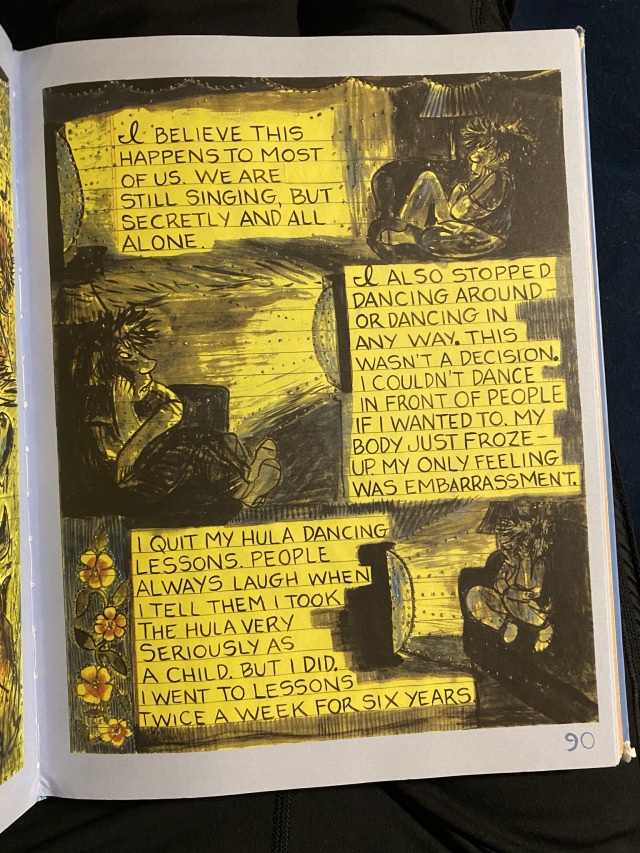 I BELIEVE THIS
HAPPENS TO MOST
OF US. WE ARE
STILL SINGING, BUT
SECRETLY AND ALL
ALONE.
I ALSO STOPPED
DANCING AROUND
OR DANCING IN
ANY WAY. THIS
WASN'T A DECISION.
I COULDN'T DANCE
IN FRONT OF PEOPLE
IF I WANTED TO. MY
BODY JUST FROZE-
UP. MY ONLY FEELING
WAS EMBARRASSMENT.
I QUIT MY HULA DANCING
LESSONS. PEOPLE
ALWAYS LAUGH WHEN
I TELL THEM I TOOK
THE HULA VERY
SERIOUSLY AS
A CHILD. BUT I DID.
I WENT TO LESSONS
TWICE A WEEK FOR SIX YEARS.
90